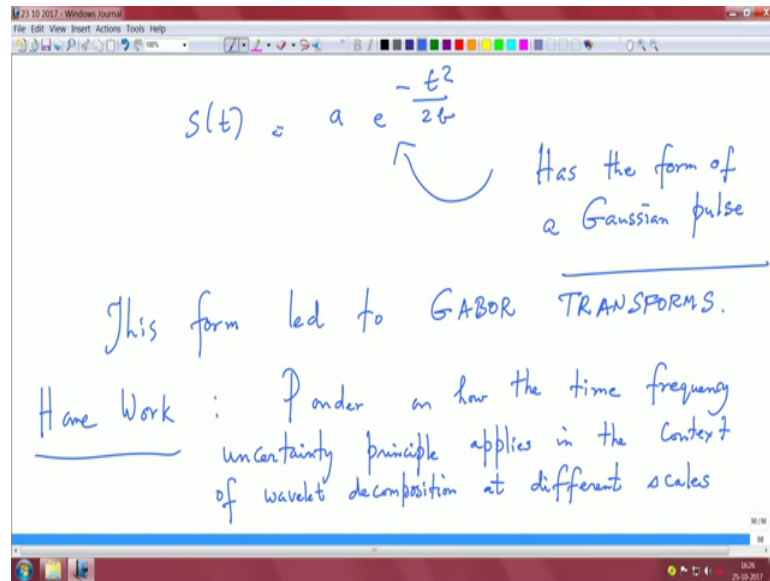 23 10 2017 - Windows Journal
File Edit View Insert Actions Tools Help
s(t) = a e^{-t²/2b}
Has the form of
a Gaussian pulse
This form led to GABOR TRANSFORMS.
Home Work : Ponder on how the time frequency
uncertainty principle applies in the context
of wavelet decomposition at different scales
16:26
25-10-2017